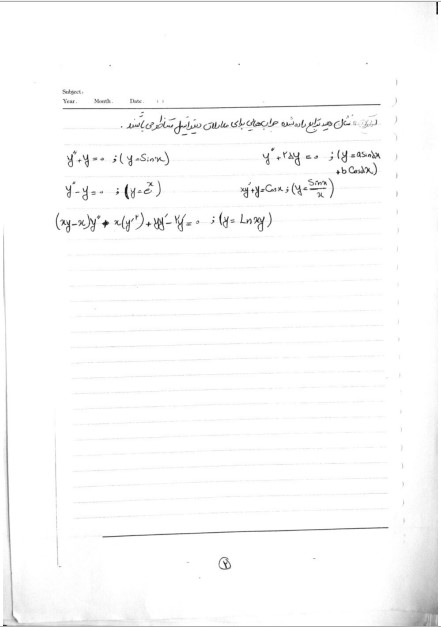 Subject:
Year. Month. Date.
نشان دهید توابع داده شده جواب‌های برای معادلات دیفرانسیل متناظر می‌باشند.
y″+y=0 ; (y=Sinx) y″+۲۵y=0 ; (y=asin5x
+b Cos5x)
y″-y=0 ; (y=eˣ) xy′+y=Cosx ; (y=Sinx/x)
(xy-x)y″+x(y′²)+yy′-۲y′=0 ; (y=Lnxy)
۲